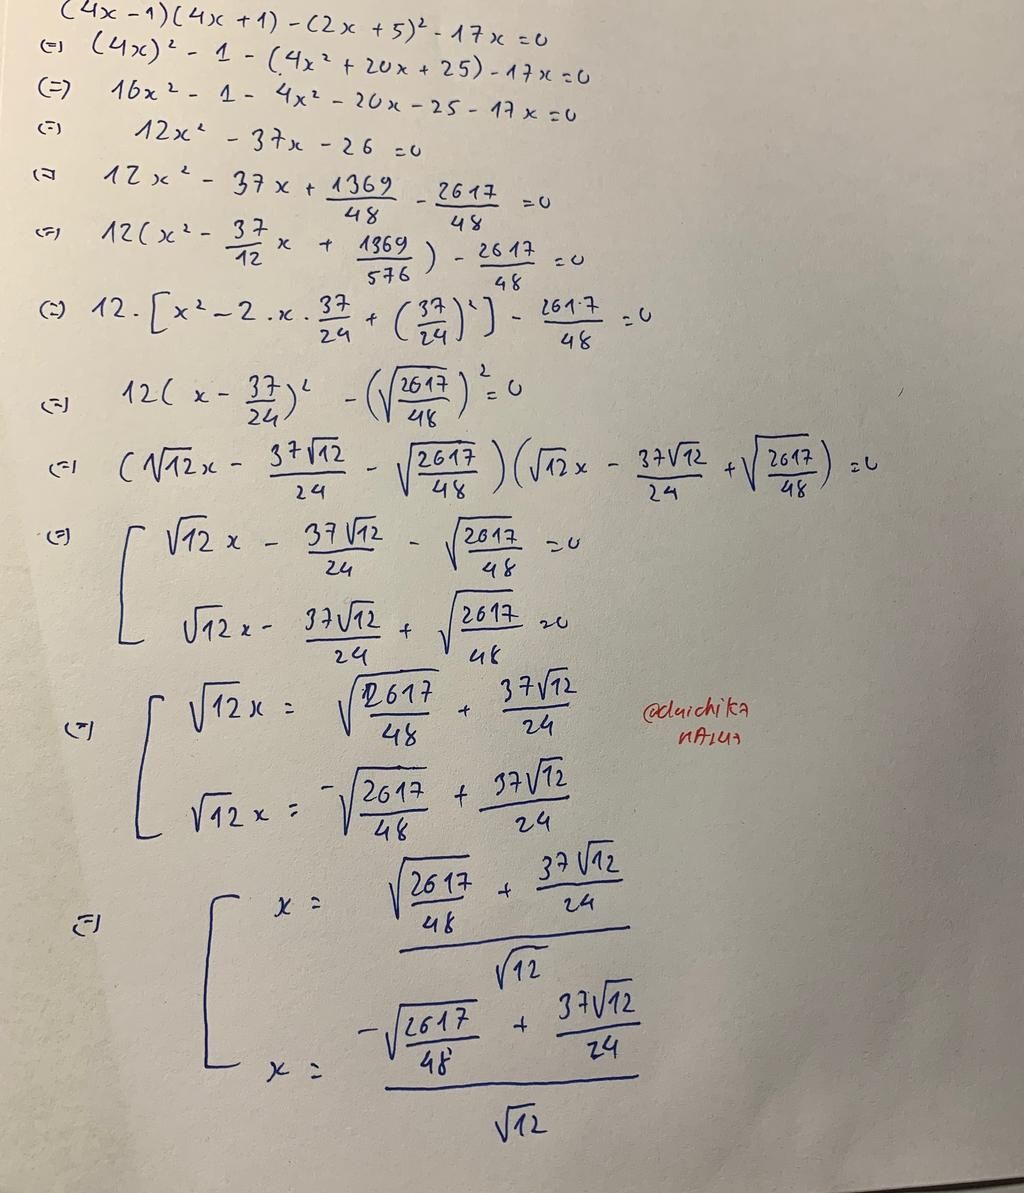 (4x - 1)(4x + 1) - (2x + 5)² - 17x = 0
(=) (4x)² - 1 - (4x² + 20x + 25) - 17x = 0
(=) 16x² - 1 - 4x² - 20x - 25 - 17x = 0
(=) 12x² - 37x - 26 = 0
(=) 12x² - 37x + 1369/48 - 2617/48 = 0
(=) 12(x² - 37/12 x + 1369/576) - 2617/48 = 0
(=) 12.[x² - 2.x.37/24 + (37/24)²] - 2617/48 = 0
(=) 12(x - 37/24)² - (√(2617/48))² = 0
(=) (√12x - 37√12/24 - √(2617/48))(√12x - 37√12/24 + √(2617/48)) = 0
(=) [ √12x - 37√12/24 - √(2617/48) = 0
√12x - 37√12/24 + √(2617/48) = 0
(=) [ √12x = √(2617/48) + 37√12/24
@duichika
√12x = -√(2617/48) + 37√12/24
(=) [ x = (√(2617/48) + 37√12/24)/√12
x = (-√(2617/48) + 37√12/24)/√12